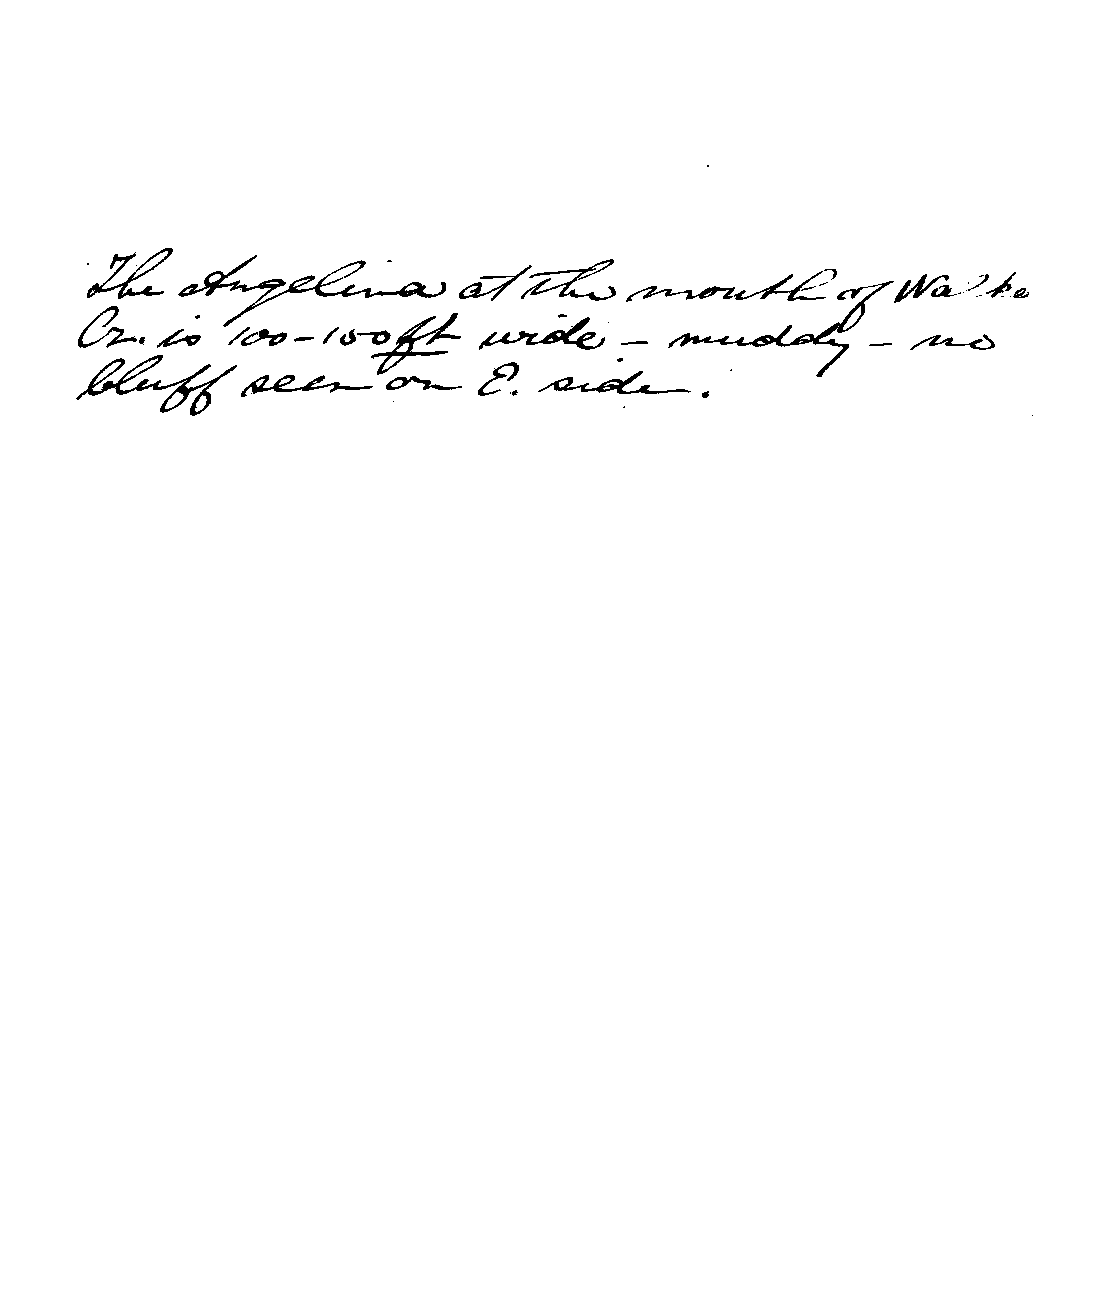 The Angelina at the mouth of
Cr. is 100-150 ft wide - muddy - no
bluff seen on E. side.